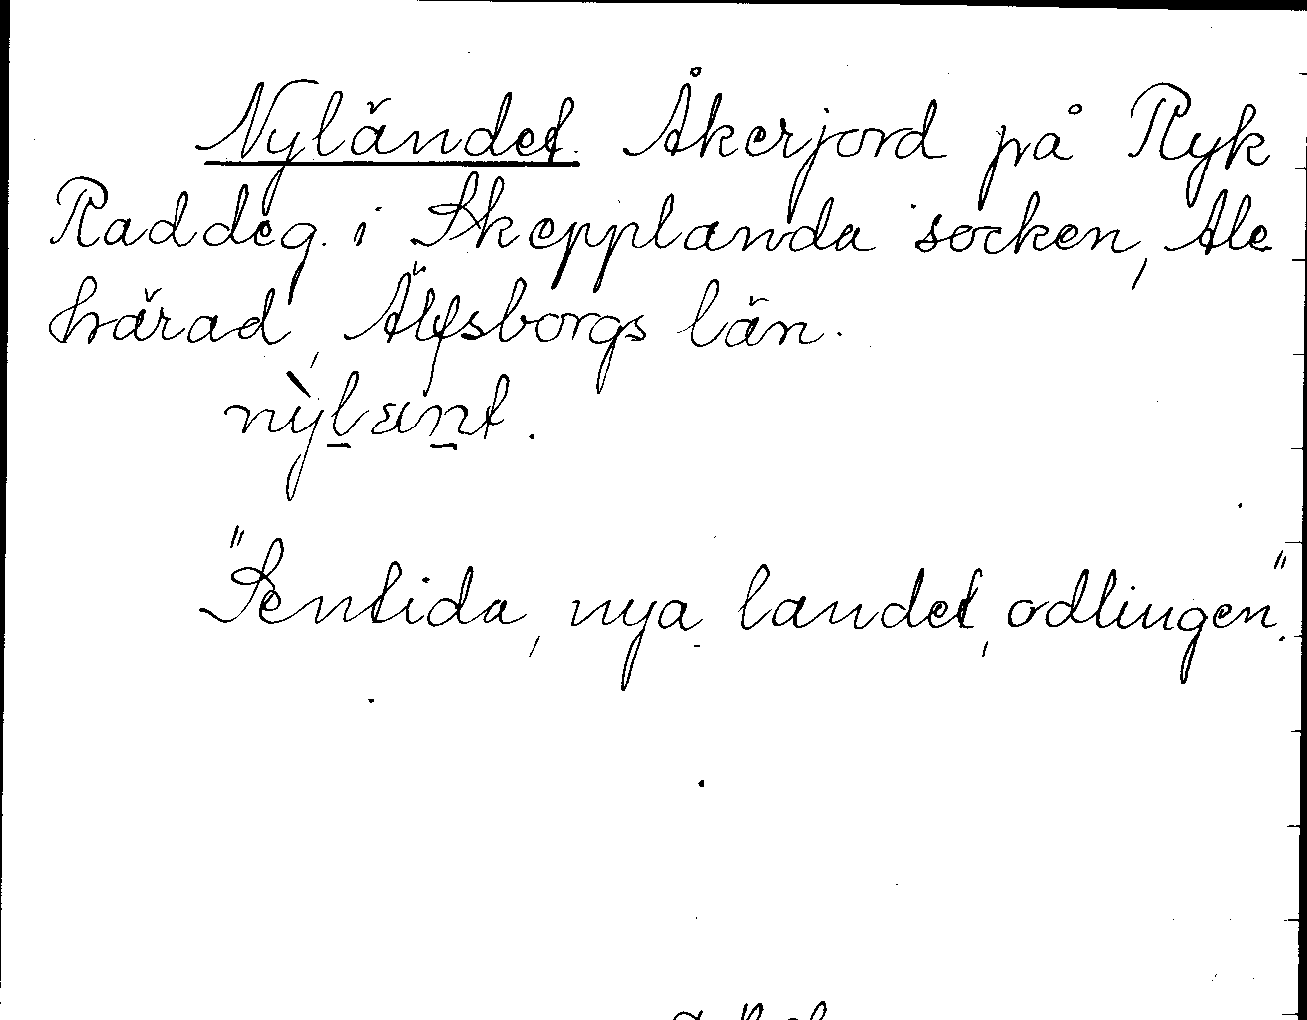 Nyländet. Åkerjord på Ryk
Raddeg. i Skepplanda socken, Ale
härad, Älfsborgs län.
nỳlænt.
"Sentida, nya landet, odlingen."